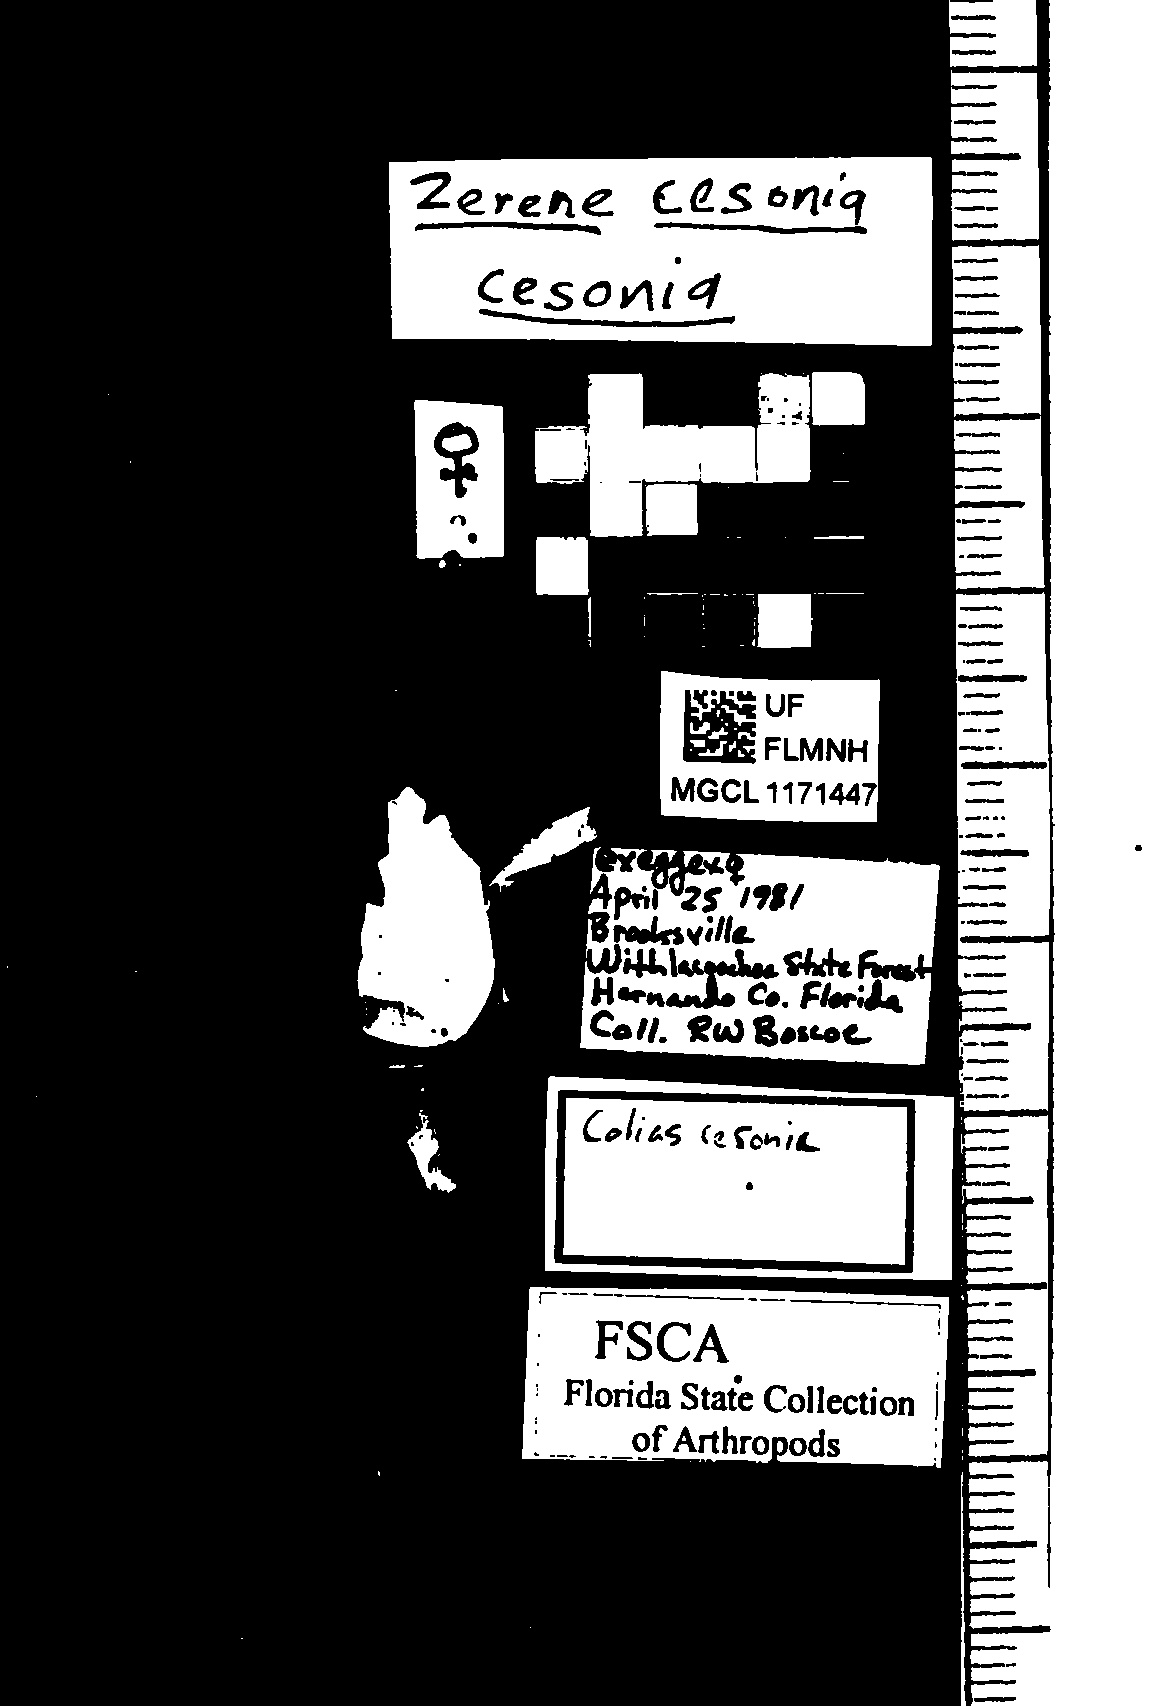 Zerene cesonia
cesonia
♀
UF
FLMNH
MGCL 1171447
ex egg ex ♀
April 25 1981
Brooksville
Withlacoochee State Forest
Hernando Co. Florida
Coll. RW Boscoe
Colias cesonia
FSCA
Florida State Collection
of Arthropods